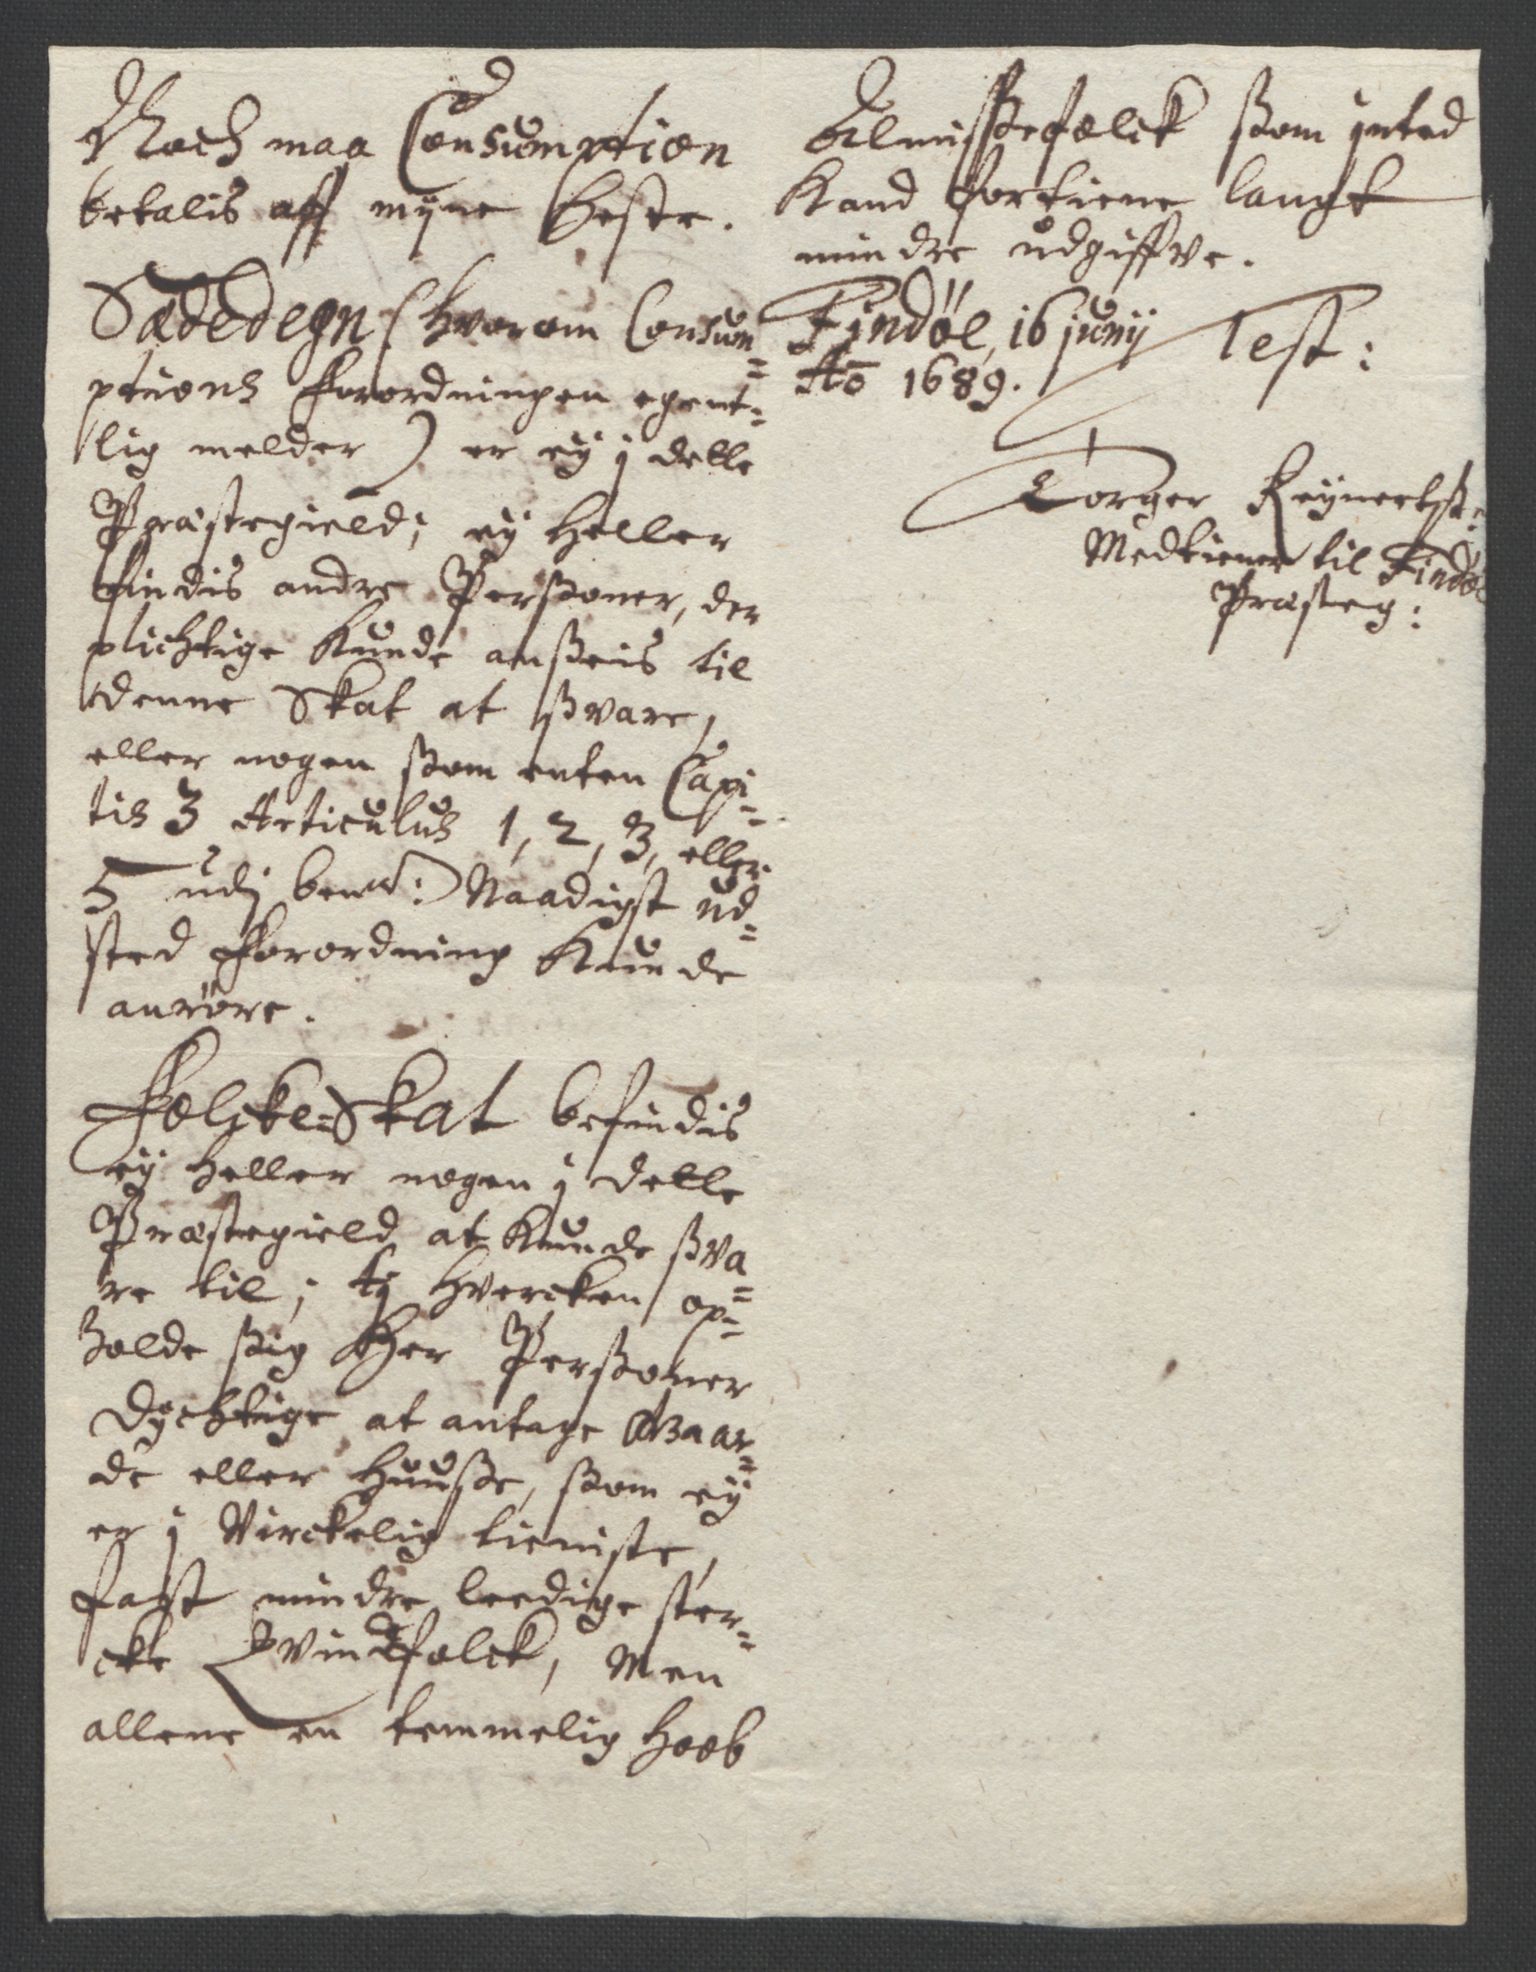 Noch maa Consumption
betalis aff mÿne Heste.
Sædedegn (hvorom Consum=
ptions Forordningen egent=
lig melder) er eÿ j dette
Præstegield; eÿ heller
findis andre Perßoner, der
plichtige kunde anßeis til
denne Skat at ßvare,
eller nogen ßom enten Capi=
tis 3 Articulus 1, 2, 3, eller
5 udj bem.te: Naadigst ud=
sted Forordning kunde
anröre.
Folcke=Skat befindis
eÿ heller nogen j dette
Præstegield at kunde ßva=
re til; tj hvercken op=
holde ßig her Perßoner
dÿchtige at antage Gaar=
de eller Huuße, ßom eÿ
er j Virckelig tieniste,
fast mindre leedige ster=
cke Qvindfolck, Men
allene en temmelig hoob
Almißefolck ßom jnted
kand fortiene langt
mindre udgiffve.
Findöe, 16 junij
Ao 1689.
Test:
Torger Reÿnertß:
Medtiener til Findöe
Præsteg: